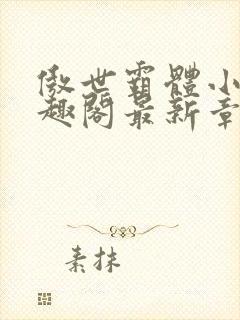 傲世霸體小
趣閣最新章
素抹